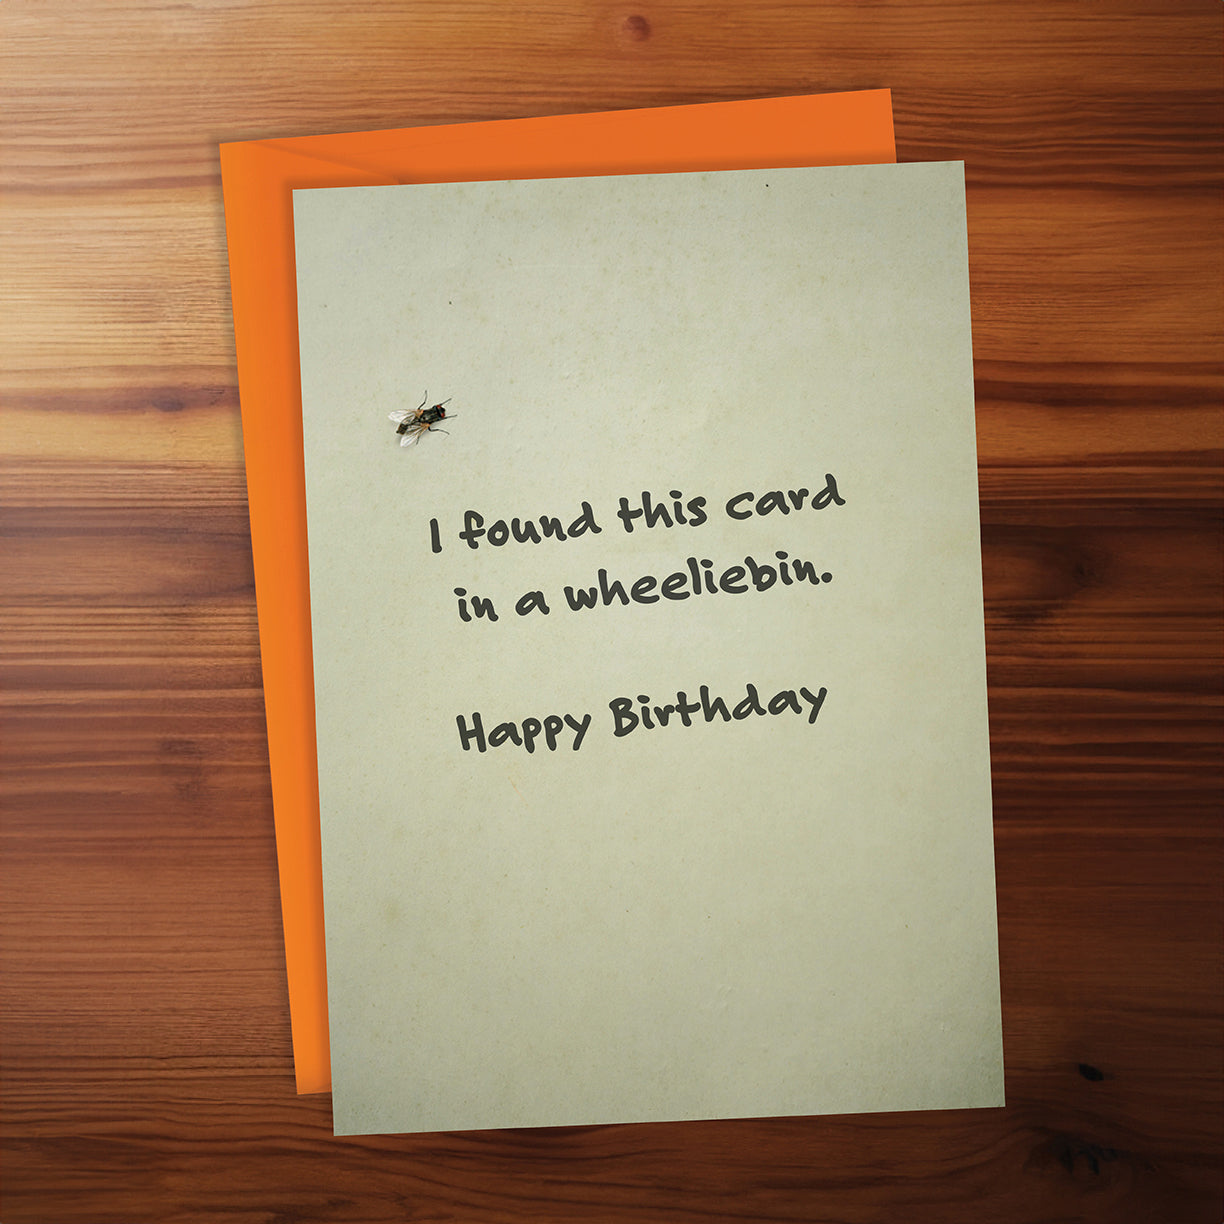 I found this card
in a wheeliebin.
Happy Birthday